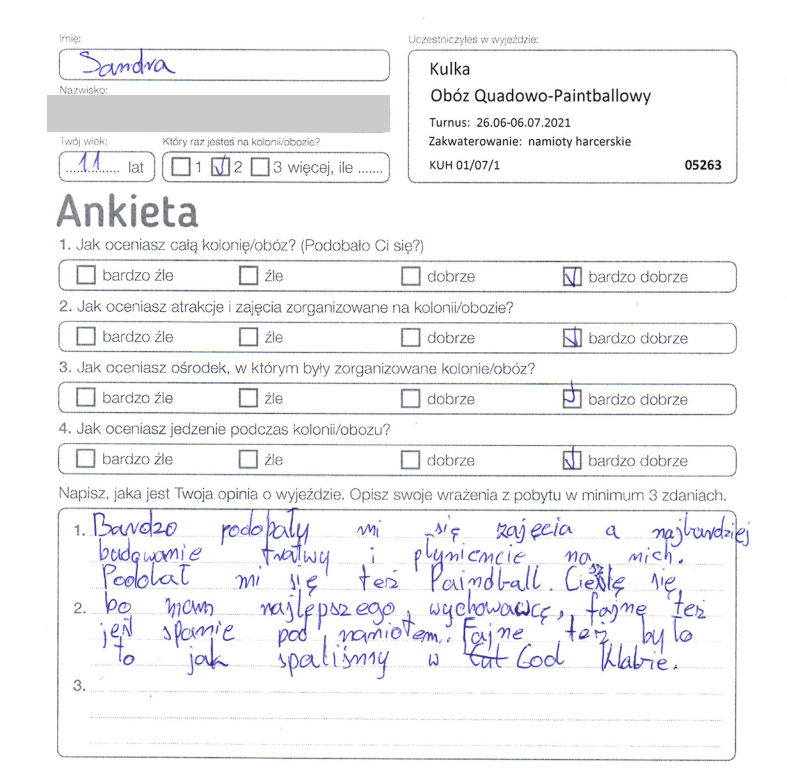 Imię:
Sandra
Uczestniczyłeś w wyjeździe:
Kulka
Obóz Quadowo-Paintballowy
Turnus: 26.06-06.07.2021
Zakwaterowanie: namioty harcerskie
KUH 01/07/1 05263
Nazwisko:
Twój wiek:
11 lat
Który raz jesteś na kolonii/obozie?
1 2 3 więcej, ile .......
Ankieta
1. Jak oceniasz całą kolonię/obóz? (Podobało Ci się?)
bardzo źle źle dobrze bardzo dobrze
2. Jak oceniasz atrakcje i zajęcia zorganizowane na kolonii/obozie?
bardzo źle źle dobrze bardzo dobrze
3. Jak oceniasz ośrodek, w którym były zorganizowane kolonie/obóz?
bardzo źle źle dobrze bardzo dobrze
4. Jak oceniasz jedzenie podczas kolonii/obozu?
bardzo źle źle dobrze bardzo dobrze
Napisz, jaka jest Twoja opinia o wyjeździe. Opisz swoje wrażenia z pobytu w minimum 3 zdaniach.
1. Bardzo podobały mi się zajęcia a najbardziej
budowanie tratwy i płyniencie na nich.
Podobał mi się też Paindball. Cieszę się
2. bo mam najlepszego wychowawcę, fajnę też
jest spanie pod namiotem. Fajne też było
to jak spaliśmy w God Klabie.
3.